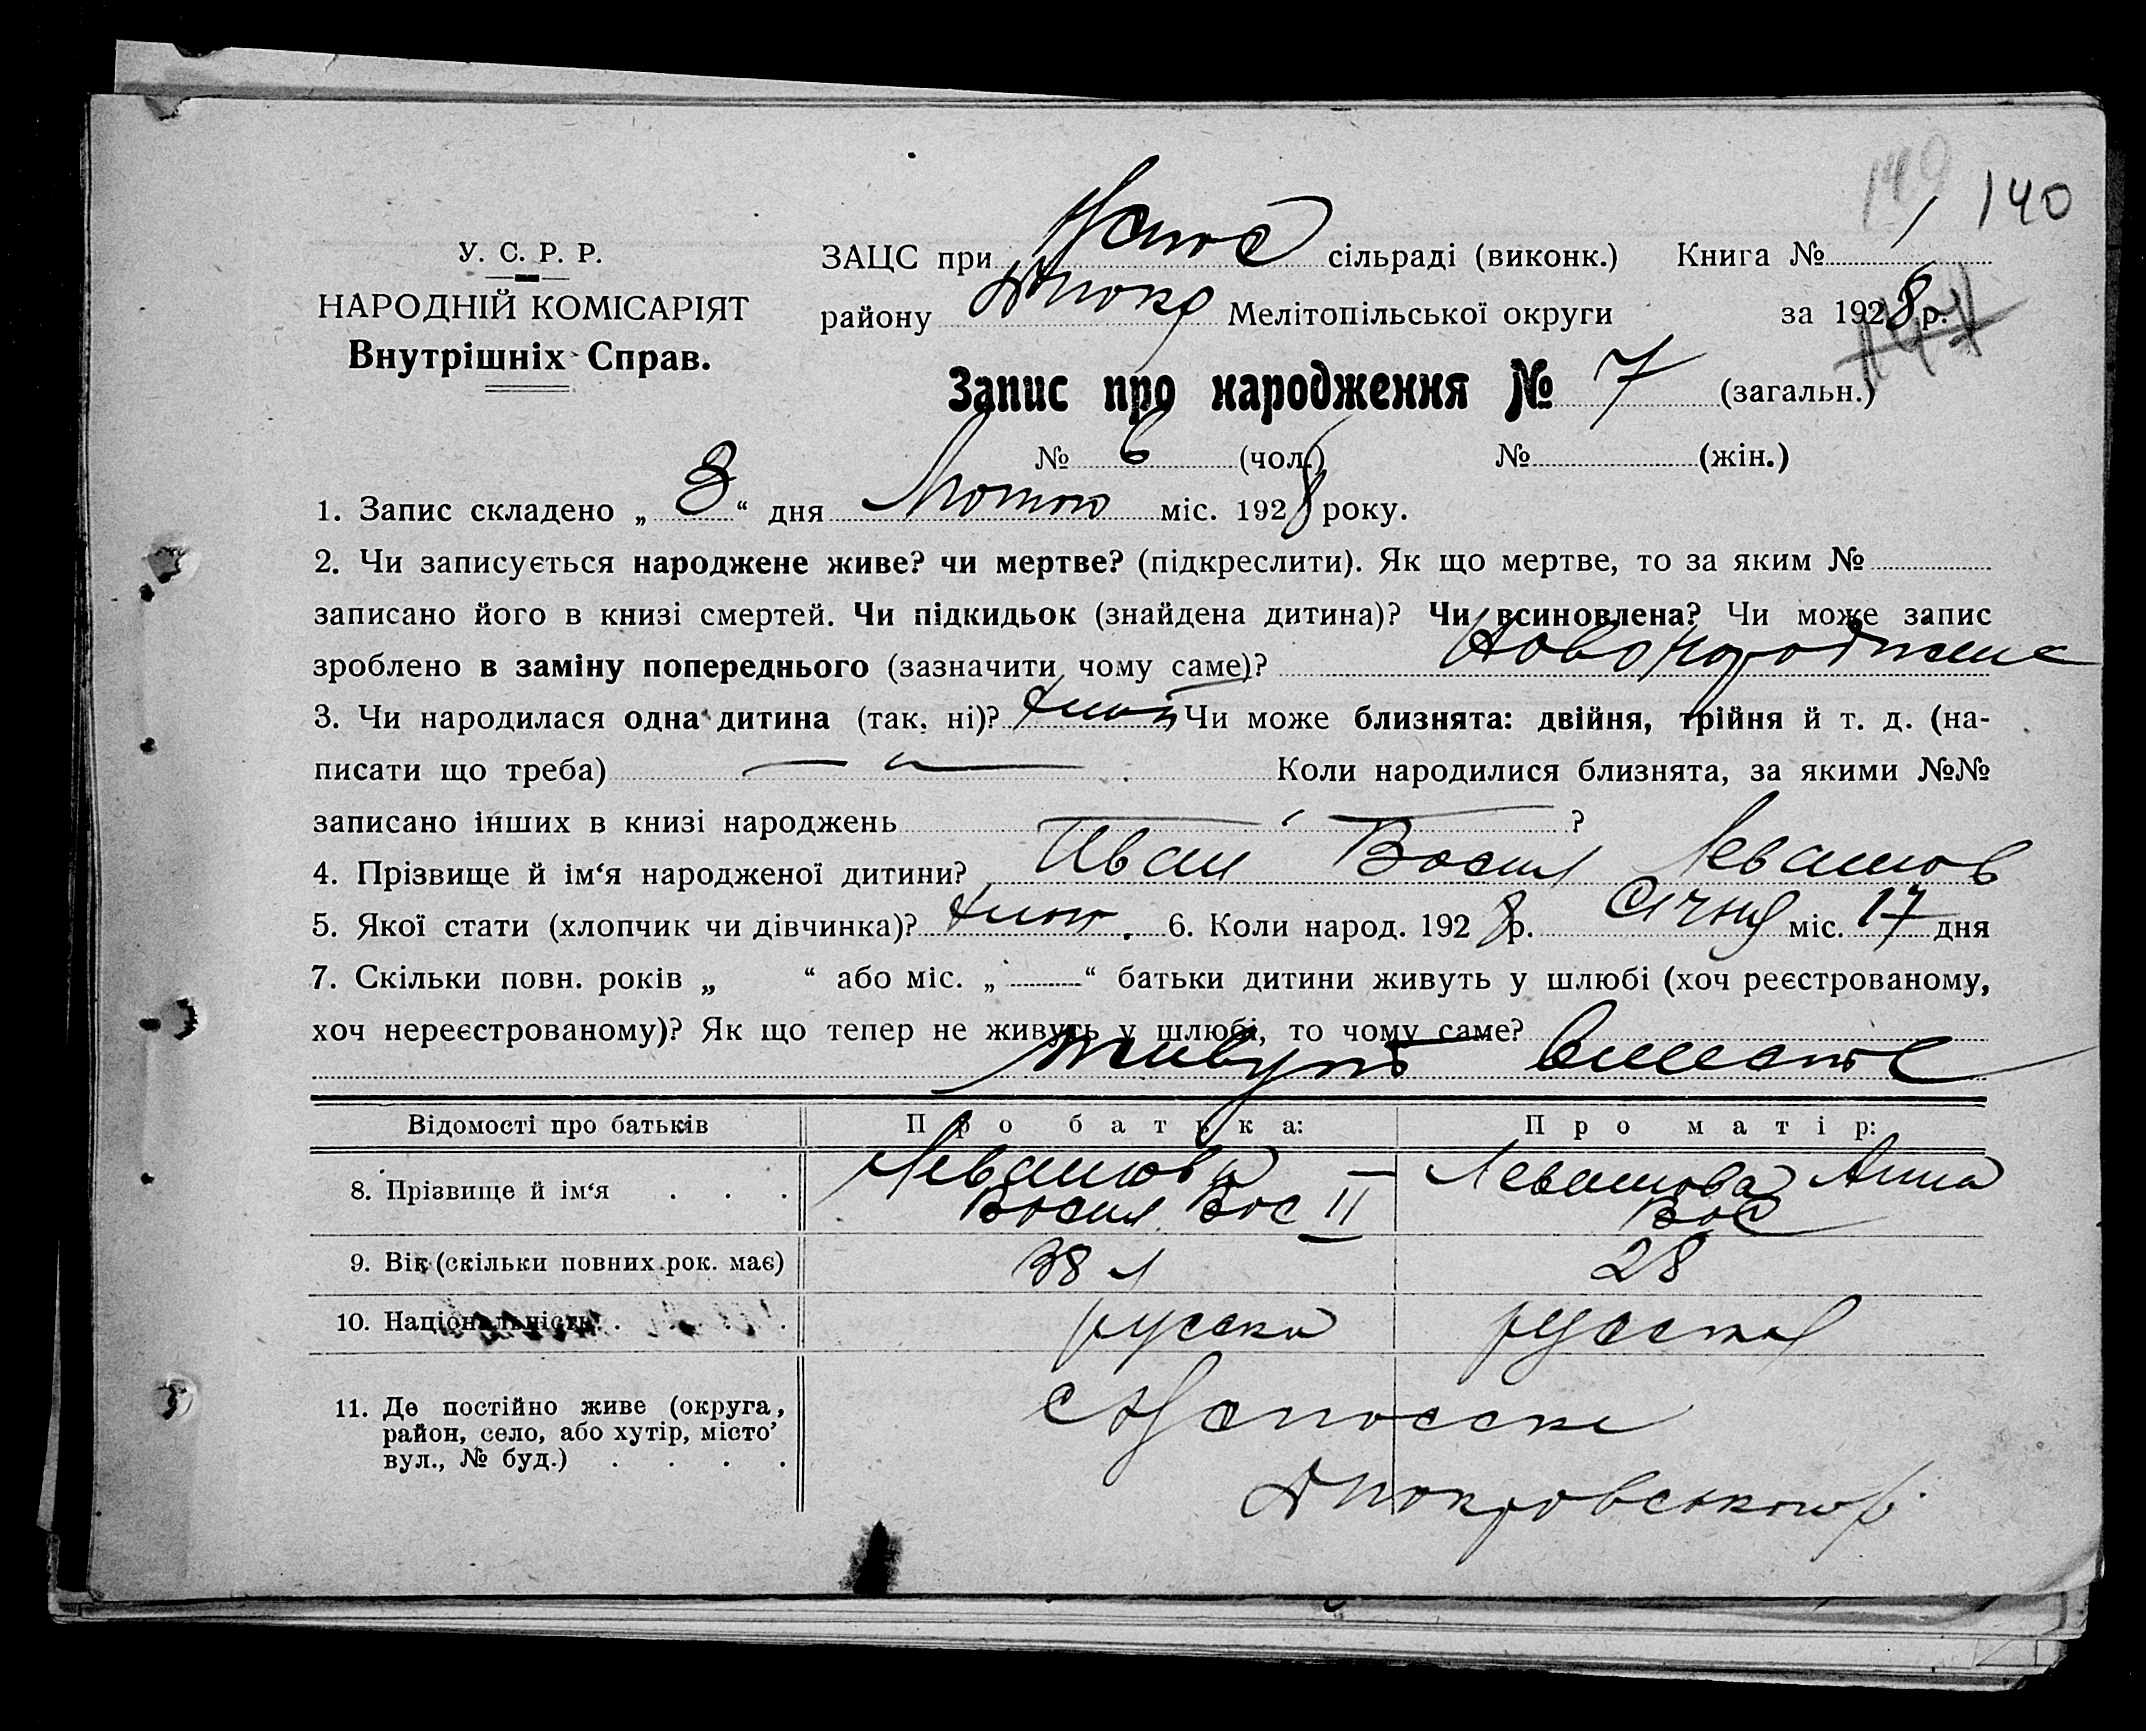 149 140
У. С. Р. Р.
НАРОДНІЙ КОМІСАРІЯТ
Внутрішніх Справ.
ЗАЦС при сільраді (виконк.) Книга № 1
району Мелітопільської округи за 1928 р.
Запис про народження № 7 (загальн.)
№ 6 (чол.) № (жін.)
1. Запис складено „ 3 “ дня Лютого міс. 1928 року.
2. Чи записується народжене живе? чи мертве? (підкреслити). Як що мертве, то за яким №
записано його в книзі смертей. Чи підкидьок (знайдена дитина)? Чи всиновлена? Чи може запис
зроблено в заміну попереднього (зазначити чому саме)? Новонароджене
3. Чи народилася одна дитина (так, ні)? Чи може близнята: двійня, трійня й т. д. (на-
писати що треба) Коли народилися близнята, за якими №№
записано інших в книзі народжень ?
4. Прізвище й ім‘я народженої дитини? Иван Васил Левашов
5. Якої стати (хлопчик чи дівчинка)? 6. Коли народ. 1928 р. Січня міс. 17 дня
7. Скільки повн. років „ “ або міс. „ “ батьки дитини живуть у шлюбі (хоч реєстрованому,
хоч нереєстрованому)? Як що тепер не живуть у шлюбі, то чому саме?
Живуть вместе
Відомості про батьків Про батька: Про матір:
8. Прізвище й ім‘я . . . Левашов Васил Вас II Левашова Анна Вас
9. Вік (скільки повних рок. має) 38 л 28
10. Національність . . . . русский русская
11. Де постійно живе (округа,
район, село, або хутір, місто’
вул., № буд.) . . . .